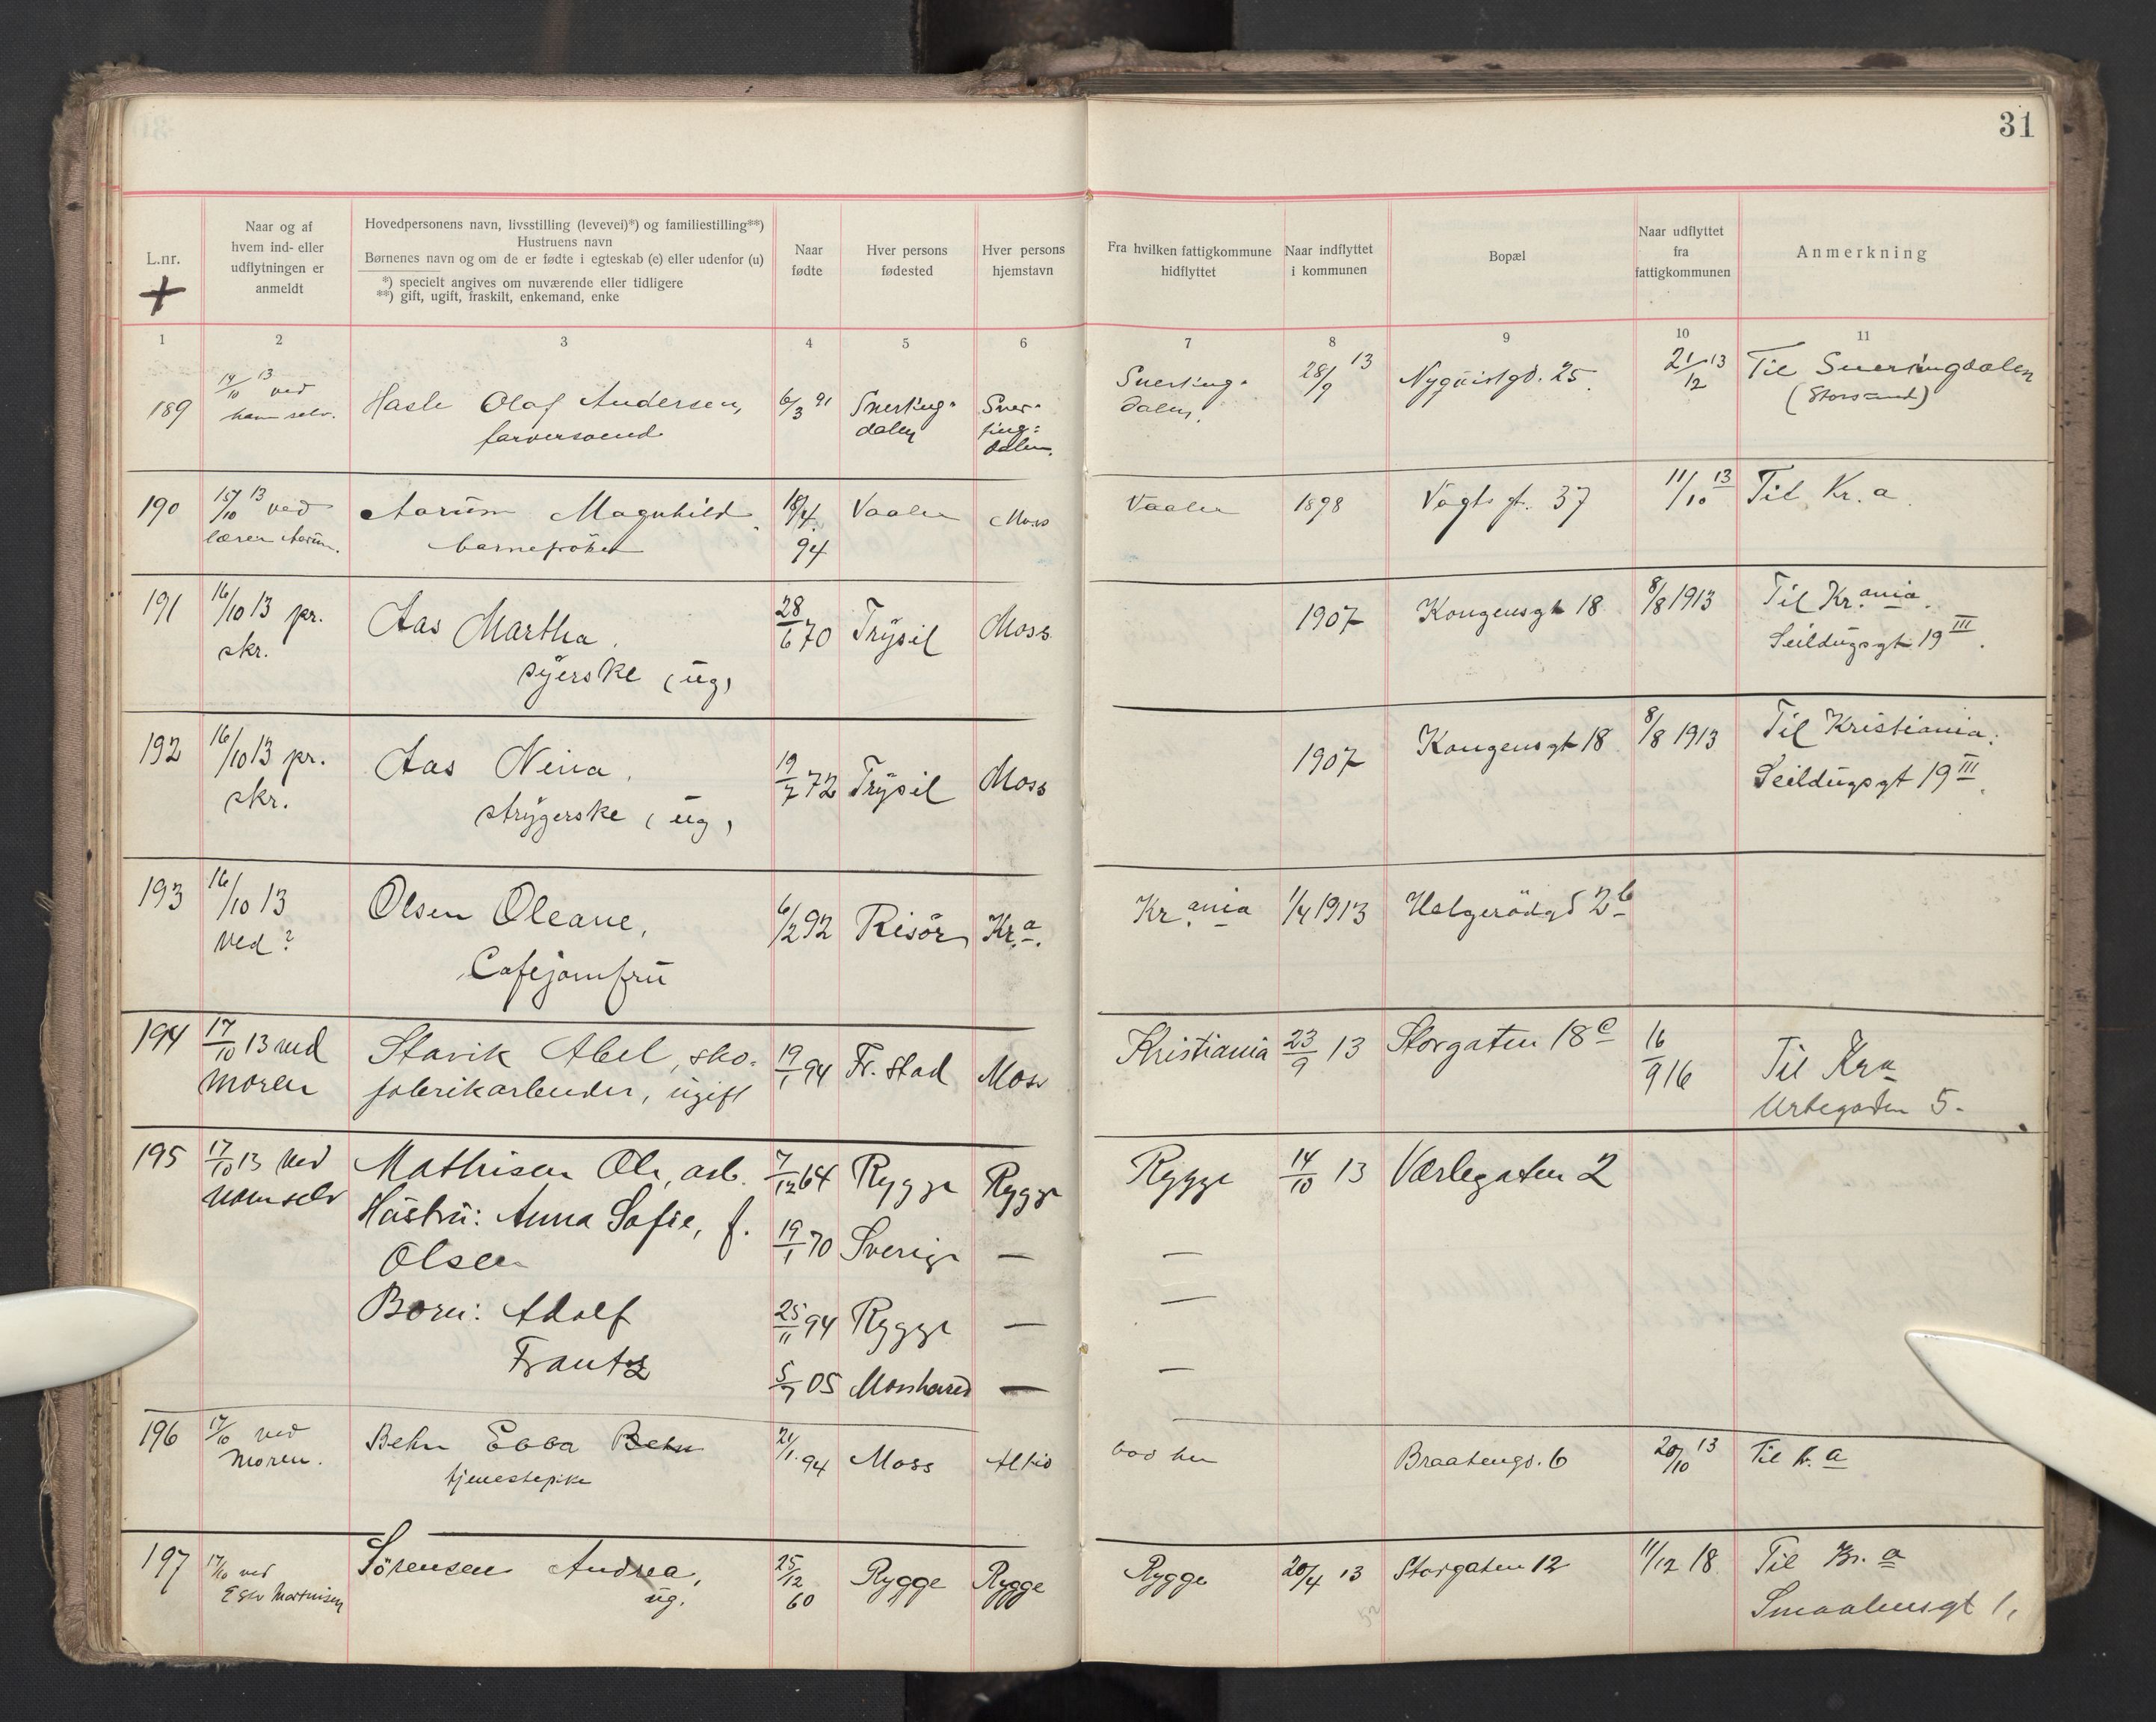 31
L.nr.
Naar og af
hvem ind- eller
udflytningen er
anmeldt
Hovedpersonens navn, livsstilling (levevei)*) og familiestilling**)
Hustruens navn
Børnenes navn og om de er fødte i egteskab (e) eller udenfor (u)
*) specielt angives om nuværende eller tidligere
**) gift, ugift, fraskilt, enkemand, enke
Naar
fødte
Hver persons
fødested
Hver persons
hjemstavn
Fra hvilken fattigkommune
hidflyttet
Naar indflyttet
i kommunen
Bopæl
Naar udflyttet
fra
fattigkommunen
Anmerkning
1 2 3 4 5 6 7 8 9 10 11
189
14/10 13 ved
ham selv.
Hasle Olaf Andersen,
farversvend
6/3 91
Snerting-
dalen
Sner-
ting-
dalen.
Snerting-
dalen.
28/9 13
Nyquistgd. 25.
21/12 13
Til Snertingdalen
190
15/10 13 ved
lærer Aarum.
Aarum Magnhild
barnefröken
18/4
94
Vaaler
Moss
Vaaler
1898
Vogts gt. 37
11/10 13
Til Kr.a.
191
16/10 13 pr.
skr.
Aas Martha,
syerske (ug)
28/6 70
Trysil
Moss
1907
Kongensgt 18
8/8 1913
Til Kr.ania.
Seildugsgt 19 III.
192
16/10 13 pr.
skr.
Aas Nina,
strygerske (ug)
19/7 72
Trysil
Moss
1907
Kongensgt 18
8/8 1913
Til Kristiania.
Seildugsgt 19 III.
193
16/10 13
ved?
Olsen Oleane,
Cafejomfru
6/2 92
Risör
Kr.a.
Kr.ania
1/4 1913
Helgerödgd 2b
194
17/10 13 ved
moren
Stavik Abel, sko-
fabrikarbeider, ugift
19/1 94
Fr.stad
Moss
Kristiania
23/9 13
Storgaten 18c
16/9 16
Til Kra
Urtegaden 5.
195
17/10 13 ved
ham selv
Mathisen Ole, arb.
7/12 64
Rygge
Rygge
Rygge
14/10 13
Værlegaten 2
Hustru: Anna Sofie, f.
Olsen
19/1 70
Sverige
—
—
Born: Adolf
25/11 94
Rygge
—
—
Frantz
5/7 05
Mossherred
—
—
196
17/10 ved
moren.
Behn Ebba Behn
tjenestepike
21/1 94
Moss
bod her
Braatengd. 6
20/10 13
Til K.a
197
17/10 ved
Sörensen Andrea,
ug.
25/12
60
Rygge
Rygge
Rygge
20/4 13
Storgaten 12
11/12 18
Til Kr.a
Smaalensgt 1,